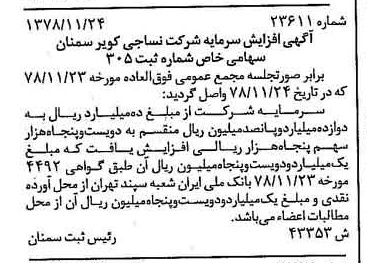 شماره ۲۳۶۱۱ ۱۳۷۸/۱۱/۲۴
آگهی افزایش سرمایه شرکت نساجی کویر سمنان
سهامی خاص شماره ثبت ۳۰۵
برابر صورتجلسه مجمع عمومی فوق‌العاده مورخه ۷۸/۱۱/۲۳
که در تاریخ ۷۸/۱۱/۲۴ واصل گردید:
سرمایه شرکت از مبلغ ده‌میلیارد ریال به
دوازده‌میلیاردوپانصدمیلیون ریال منقسم به دویست‌وپنجاه‌هزار
سهم پنجاه‌هزار ریالی افزایش یافت که مبلغ
یک‌میلیاردودویست‌وپنجاه‌میلیون ریال آن طبق گواهی ۴۴۹۲
مورخه ۷۸/۱۱/۲۳ بانک ملی ایران شعبه سپند تهران از محل آورده
نقدی و مبلغ یک‌میلیاردودویست‌وپنجاه‌میلیون ریال آن از محل
مطالبات اعضاء می‌باشد.
ش ۴۳۳۵۳ رئیس ثبت سمنان